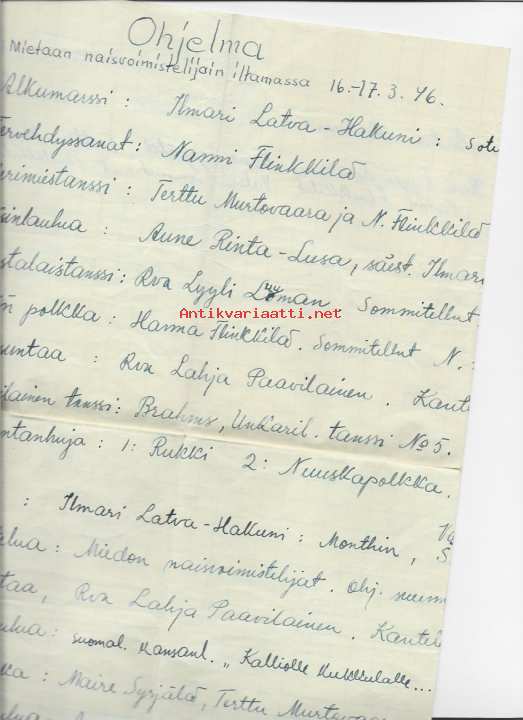 Ohjelma
Mietaan naisvoimistelijain iltamassa 16.-17.3.46.
Alkumarssi : Ilmari Latva-Hakuni : Sota
Tervehdyssanat: Nanni Flinkkilä
erimiestanssi : Terttu Murtovaara ja N. Flinkkilä
sinlaulua : Aune Rinta-Lusa, säest. Ilmari
stalaistanssi: Rva Lyyli Löman Sommitellut
n polkka : Hanna Flinkkilä. Sommitellut N.
suntaa : Rva Lahja Paavilainen. Kante
Antikvariaatti.net
ilainen tanssi: Brahms, Unkaril. tanssi No 5.
ntanhuja : 1: Rukki 2: Nuuskapolkka.
: Ilmari Latva-Hakuni : Monthin, Va
ulua : Miedon naisvoimistelijat. Ohj. S
taa, Rva Lahja Paavilainen. Kantel
ulua: Suomal. kansanl. „Kalliolle kukkulalle...
ka : Maire Syrjälä, Terttu Murtovaa